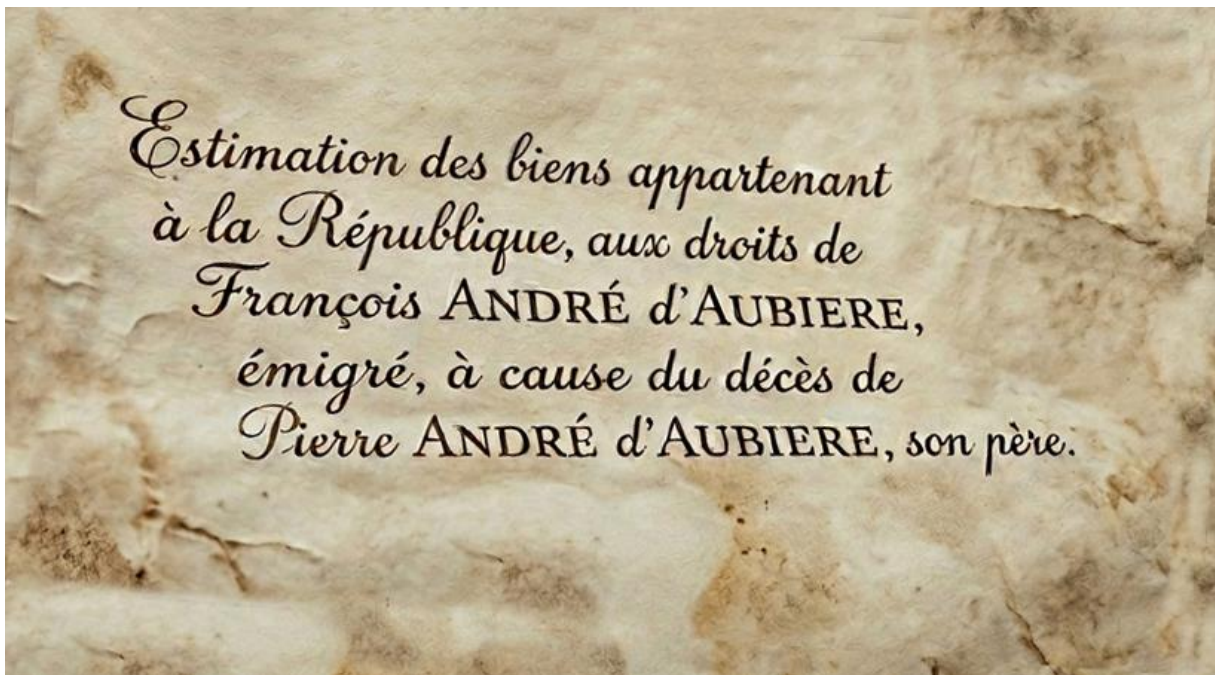 Estimation des biens appartenant
à la République, aux droits de
François ANDRÉ d'AUBIERE,
émigré, à cause du décès de
Pierre ANDRÉ d'AUBIERE, son père.